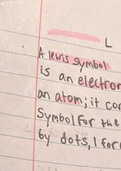 L
A lewis symbol
is an electron
an atom; it con
Symbol for the
by dots, 1 for e